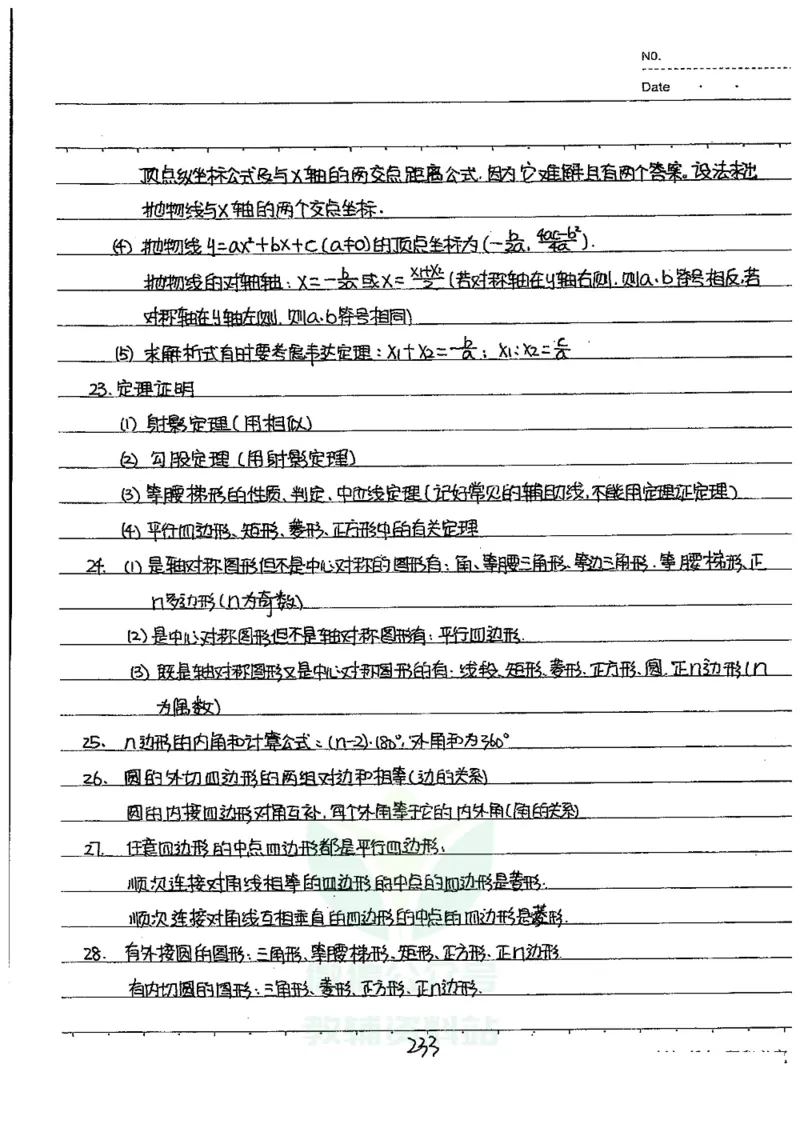 NO.
Date
顶点纵坐标公式及与X轴的两交点距离公式.因为它难解且有两个答案。设法求出
抛物线与X轴的两个交点坐标.
(4) 抛物线y=ax²+bx+c(a≠0)的顶点坐标为(-b/2a, 4ac-b²/4a).
抛物线的对称轴: X=-b/2a 或X= x₁+x₂/2 (若对称轴在y轴右侧.则a、b符号相反,若
对称轴在y轴左侧.则a、b符号相同)
(5) 求解析式有时要考虑韦达定理:X₁+X₂=-b/a; X₁·X₂=c/a
23.定理证明
(1) 射影定理(用相似)
(2) 勾股定理(用射影定理)
(3) 等腰梯形的性质、判定、中位线定理(记好常见的辅助线,不能用定理证定理)
(4) 平行四边形、矩形、菱形、正方形中的有关定理
24. (1) 是轴对称图形但不是中心对称的图形有:角、等腰三角形、等边三角形.等腰梯形、正
n多边形(n为奇数)
(2) 是中心对称图形但不是轴对称图形有:平行四边形.
(3) 既是轴对称图形又是中心对称图形的有:线段、矩形、菱形.正方形、圆.正n边形(n
为偶数)
25. n边形的内角和计算公式:(n-2)·180°,外角和为360°
26. 圆的外切四边形的两组对边和相等(边的关系)
圆的内接四边形对角互补,每个外角等于它的内外角(角的关系)
27. 任意四边形的中点四边形都是平行四边形;
顺次连接对角线相等的四边形的中点的四边形是菱形.
顺次连接对角线互相垂直的四边形的中点的四边形是菱形.
28. 有外接圆的图形:三角形、等腰梯形、矩形、正方形.正n边形.
有内切圆的图形:三角形、菱形、正方形、正n边形.
微信公众号
教辅资料站
233